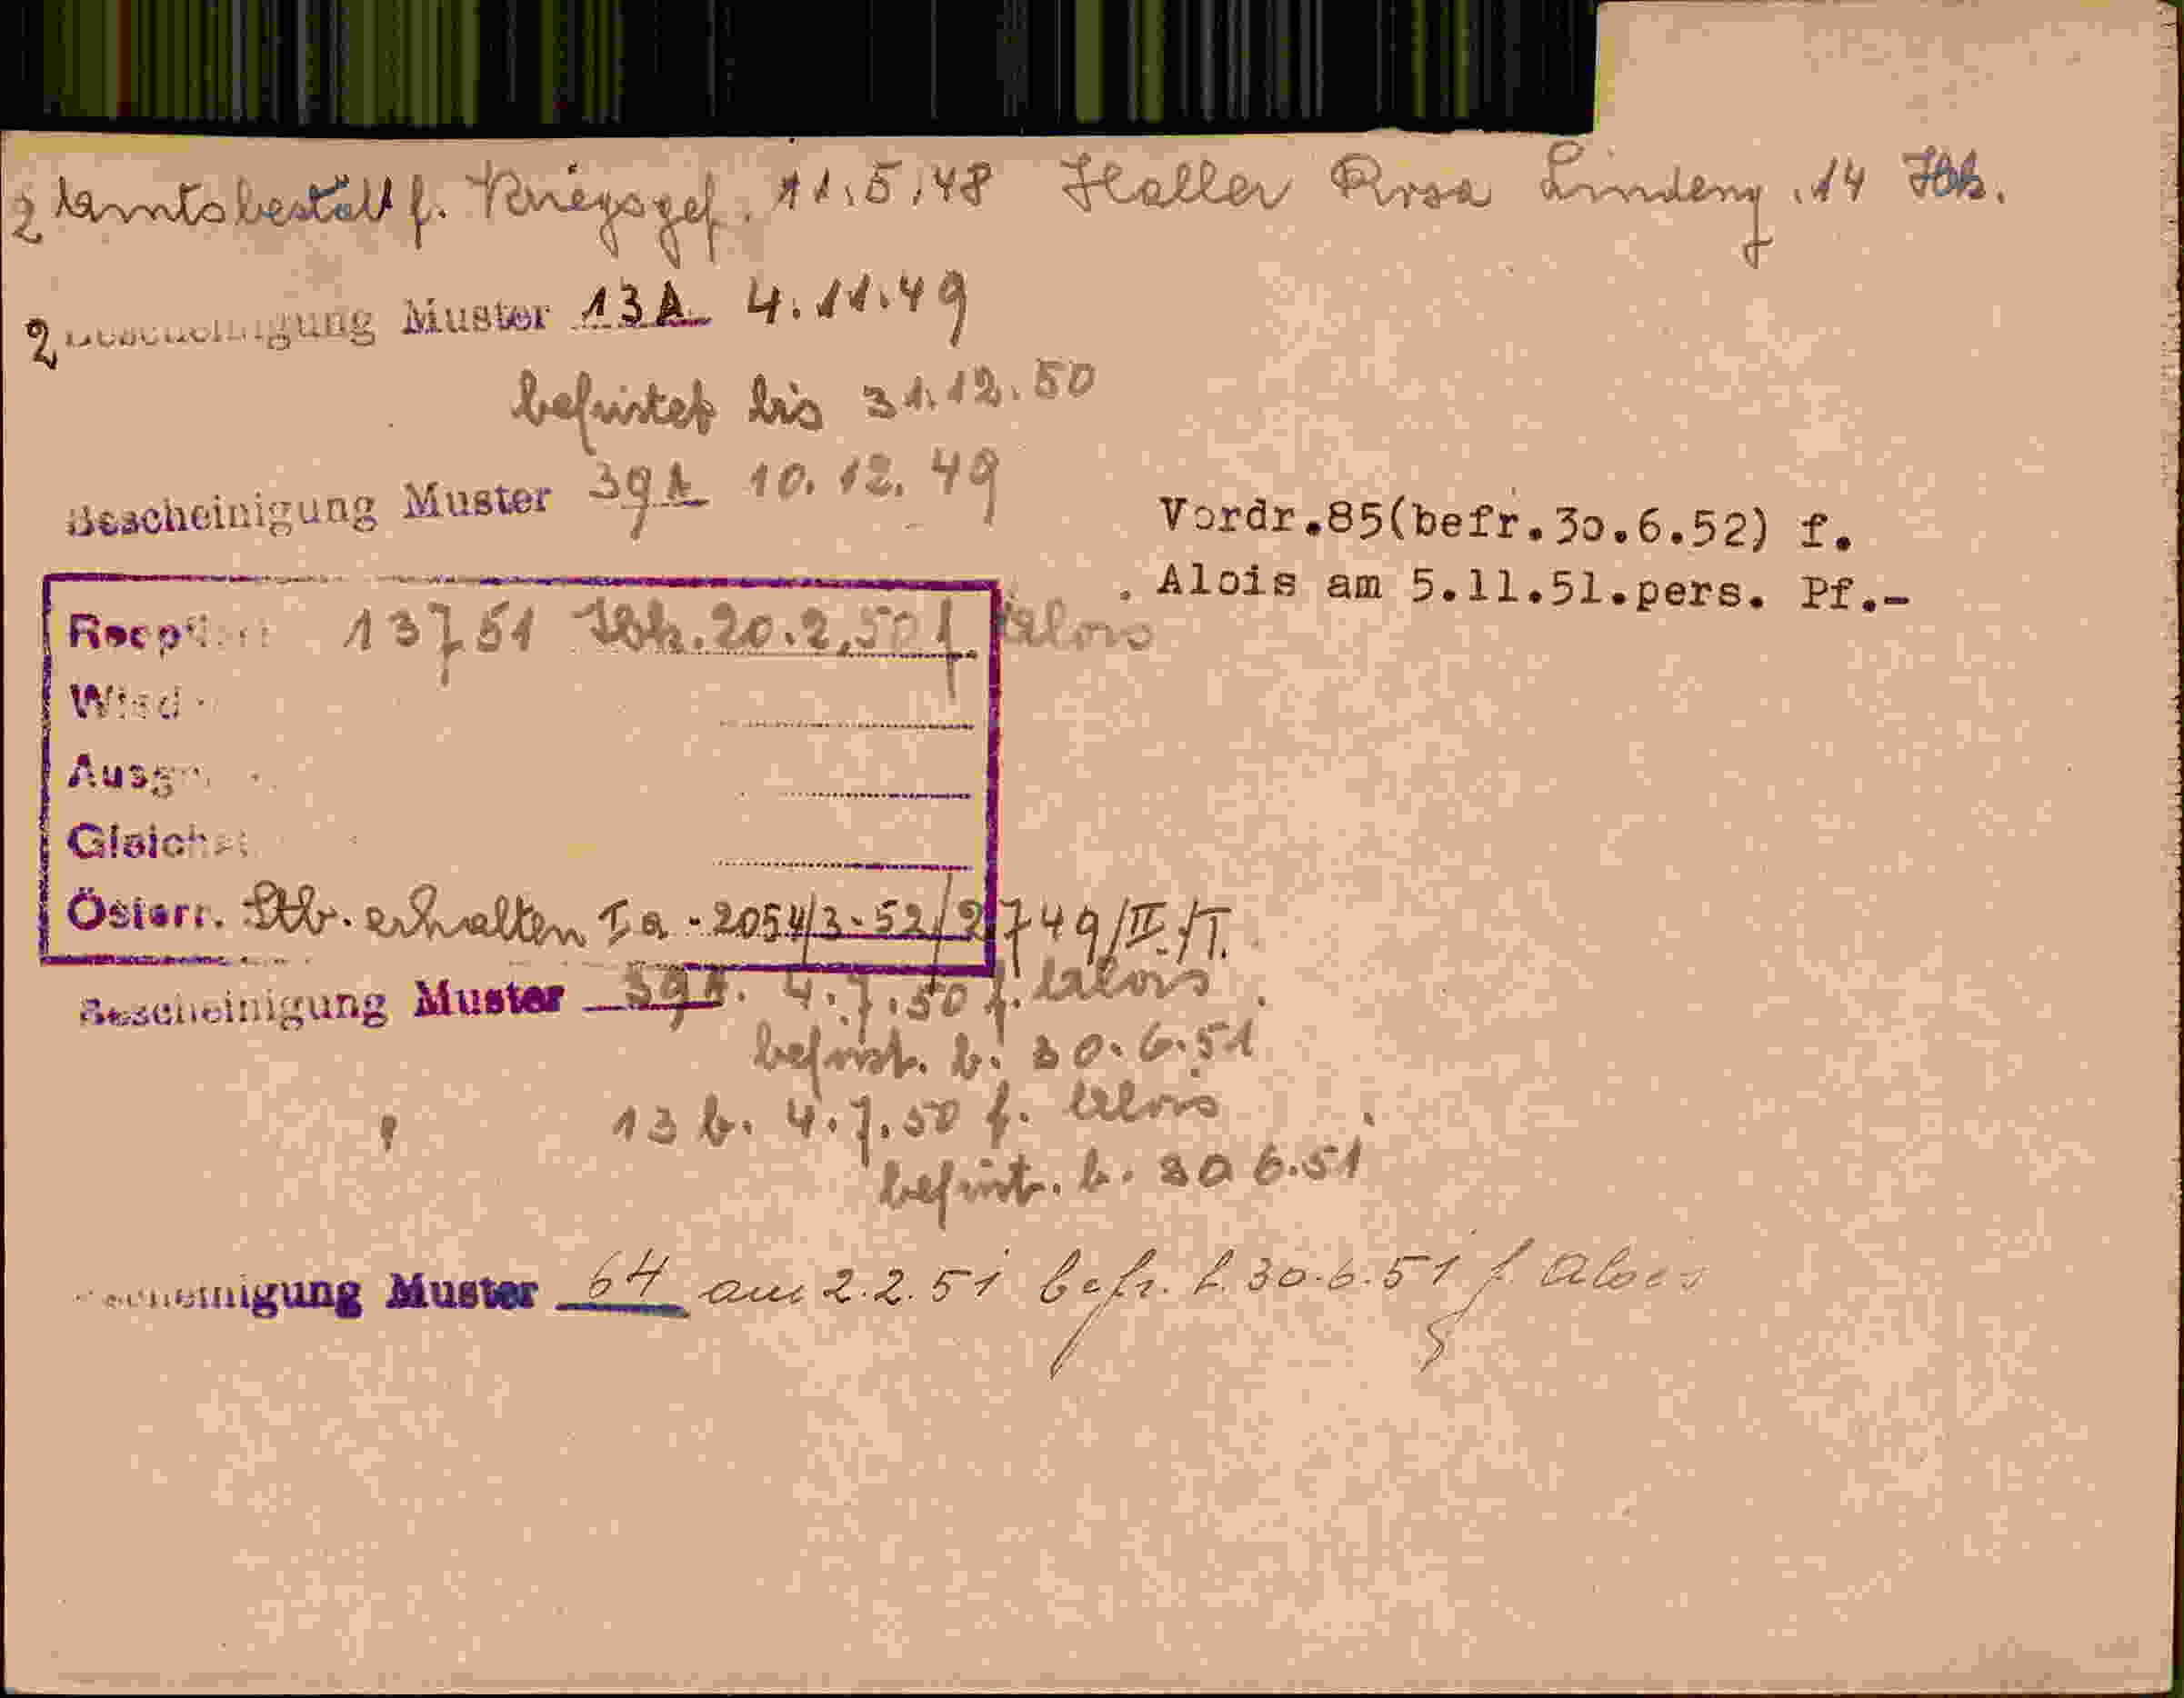 2 Amtsbestät f. Kriegsgef. 11.5.48 Haller Rosa Lindeng. 14 Ibk.
2 Bescheinigung Muster 13A 4.11.49
befristet bis 31.12.50
Bescheinigung Muster 39A 10.12.49
Vordr.85(befr.30.6.52) f.
Alois am 5.11.51.pers. Pf.-
13751 Ibk. 20.2.50 f. Alois
Österr. Stb. erhalten Ia-2054/3-52/2749/II./T.
Bescheinigung Muster 39A. 4.7.50 f. Alois
befrist. b. 30.6.51
" 13 b. 4.7.50 f. Alois
befrist. b. 30 6.51
Muster 64 am 2.2.51 befr. b. 30.6.51 f. Alois